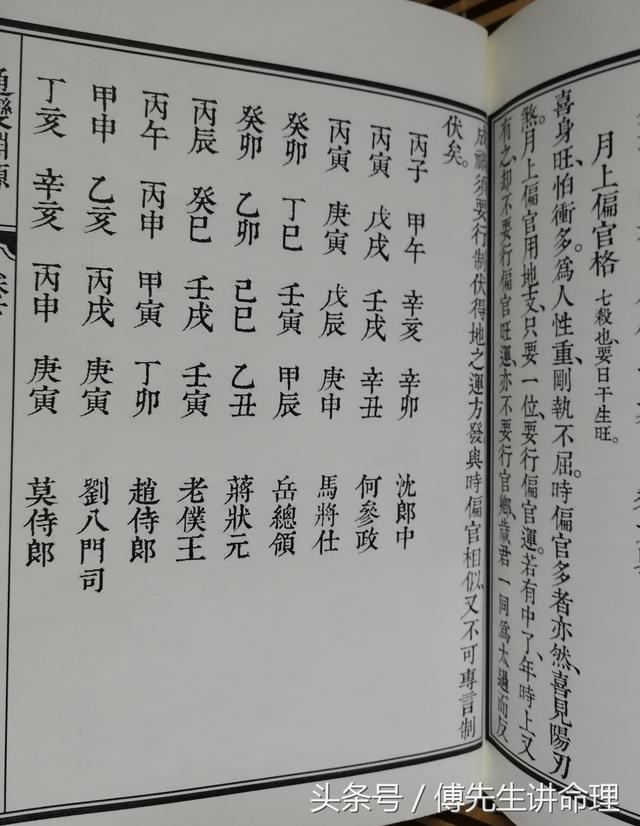 月上偏官格 七殺也、要日干生旺。
喜身旺、怕衝多。爲人性重、剛執不屈。時偏官多者亦然、喜見陽刃
煞。月上偏官用地支、只要一位、要行偏官運。若有中了、年時上又
有之、却不要行偏官旺運、亦不要行官鄉、歲君一同爲太過而反
成禍、須要行制伏得地之運方發、與時偏官相似、又不可專言制
伏矣。
丙子 甲午 辛亥 辛卯 沈郎中
丙寅 戊戌 壬戌 辛丑 何參政
丙寅 庚寅 戊辰 庚申 馬將仕
癸卯 丁巳 壬寅 甲辰 岳總領
癸卯 乙卯 己巳 乙丑 蔣狀元
丙辰 癸巳 壬戌 壬寅 老僕王
丙午 丙申 甲寅 丁卯 趙侍郎
甲申 乙亥 丙戌 庚寅 劉八門司
丁亥 辛亥 丙申 庚寅 莫侍郎
淵源
头条号 / 傅先生讲命理